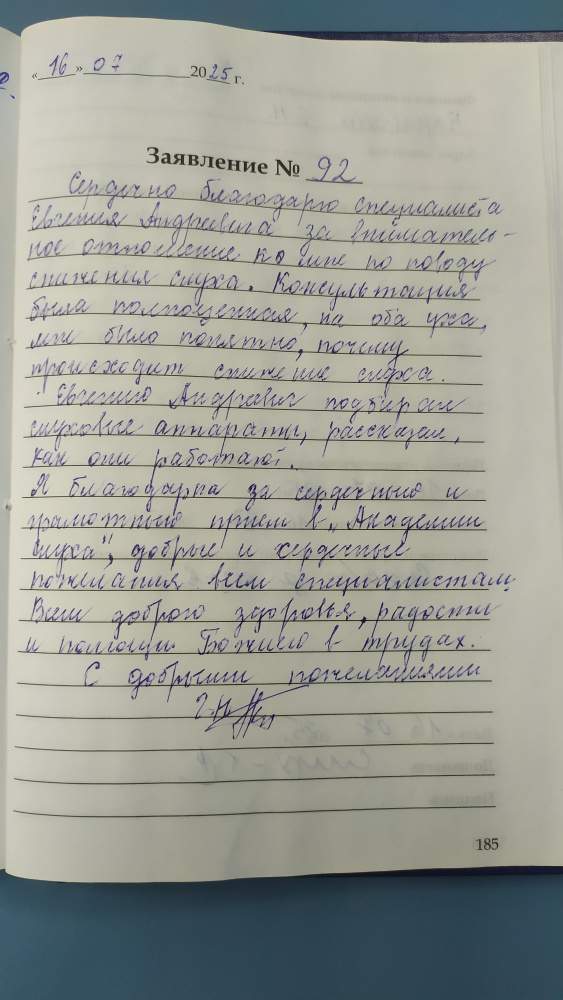 « 16 » 07 2025 г.
Заявление № 92
Сердечно благодарю специалиста
Евгения Андреевича за вниматель-
ное отношение ко мне по поводу
снижения слуха. Консультация
была полноценная, на оба уха,
мне было понятно, почему
происходит снижение слуха.
Евгению Андреевич подбирал
слуховые аппараты, рассказал,
как они работают.
Я благодарна за сердечный и
грамотный прием в „Академии
слуха", добрые и сердечные
пожелания всем специалистам.
Всем доброго здоровья, радости
и помощи Божией в трудах.
С добрыми пожеланиями
185